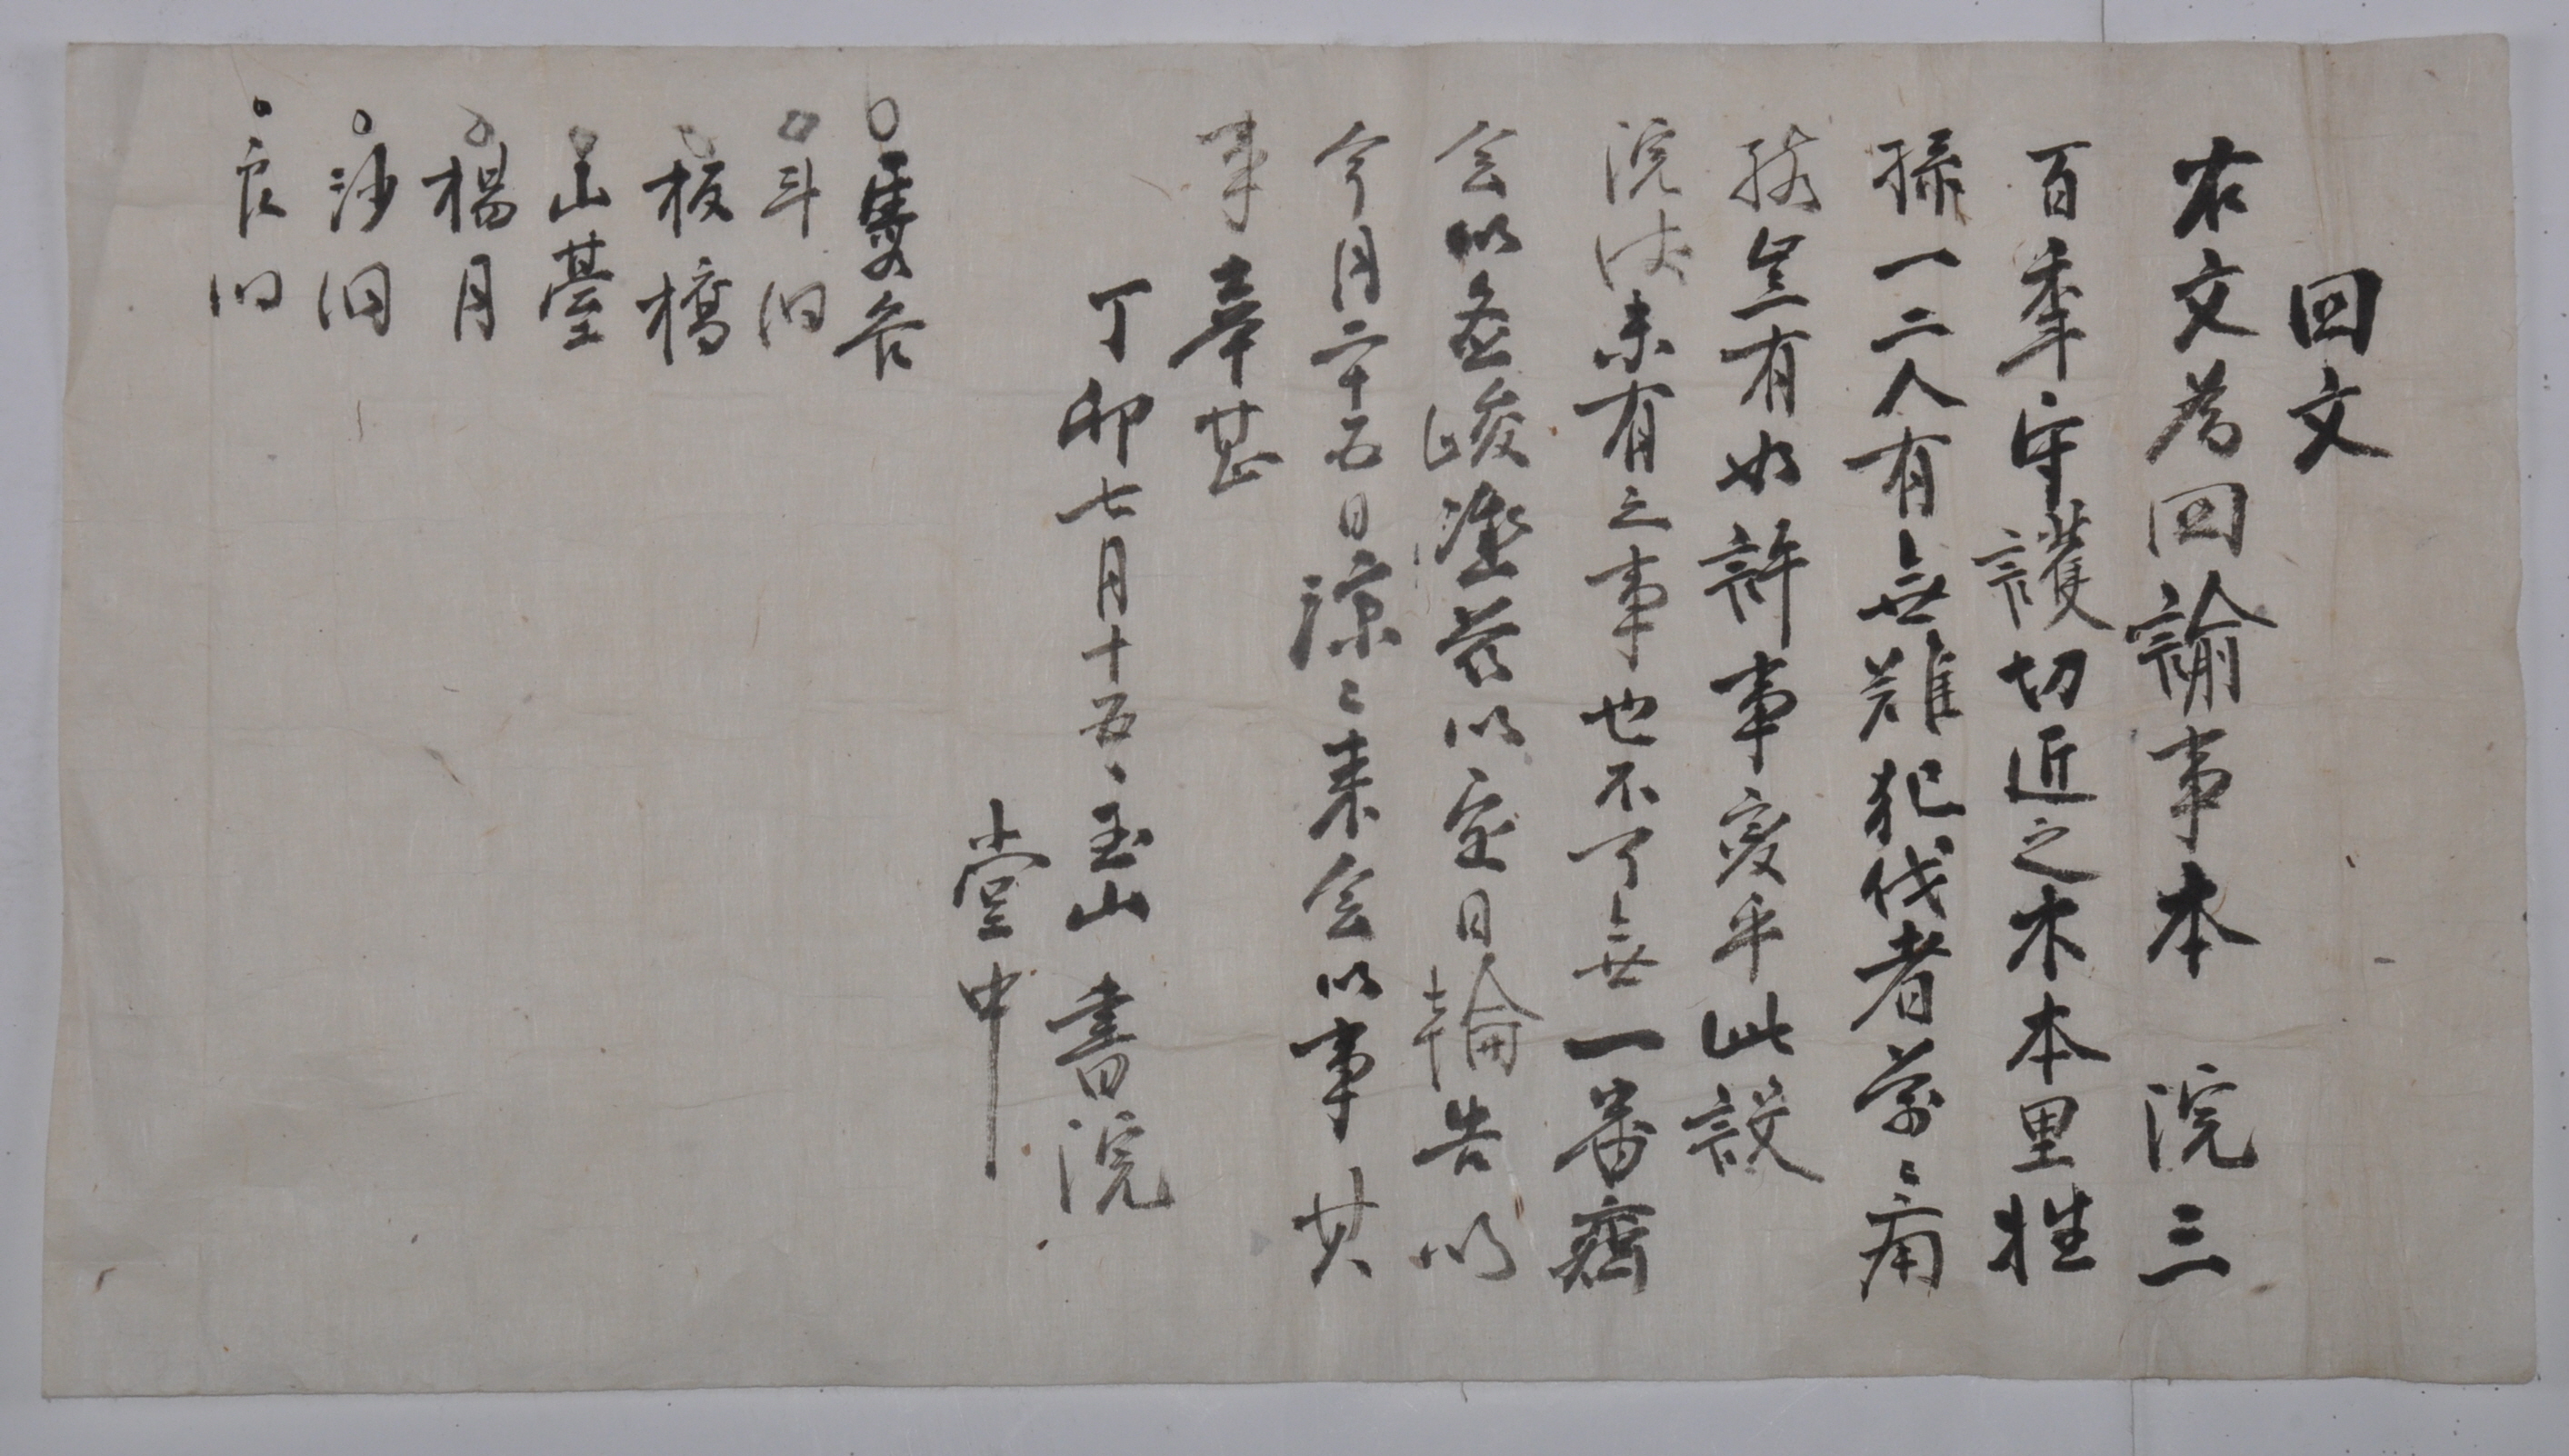 回文
右文爲回諭事本 院三
百年守護切近之木本里姓
孫一二人有無難犯伐者萬〻痛
駭豈有如許事變乎此設
院後未有之事也不可無一番齊
会以爲峻塗玆以定日輪告以
今月二十五日諒〻来会以事其
事幸甚
丁卯七月十五日玉山 書院
堂中
隻谷
斗洞
板橋
山臺
楊月
沙洞
良洞